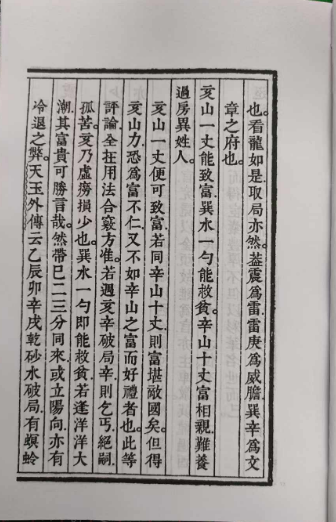 也。看龍如是取局亦然。葢震爲雷雷庚爲威膽巽辛爲文
章之府也。
亥山一丈能致富巽水一勺能救貧。辛山十丈富相親難養
過房異姓人。
亥山一丈便可致富若同辛山十丈則富堪敵國矣。但得
亥山力恐爲富不仁又不如辛山之富而好禮者也。此等
評論全在用法合竅方准。若遇亥辛破局辛則乞丐絕嗣
孤苦。亥乃虛癆損少也。巽水一勺即能救貧若逢洋洋大
潮其富貴可勝言哉。然帶巳二三分同來或立陽向亦有
冷退之弊。天玉外傳云乙辰卯辛戌乾砂水破局有螟蛉